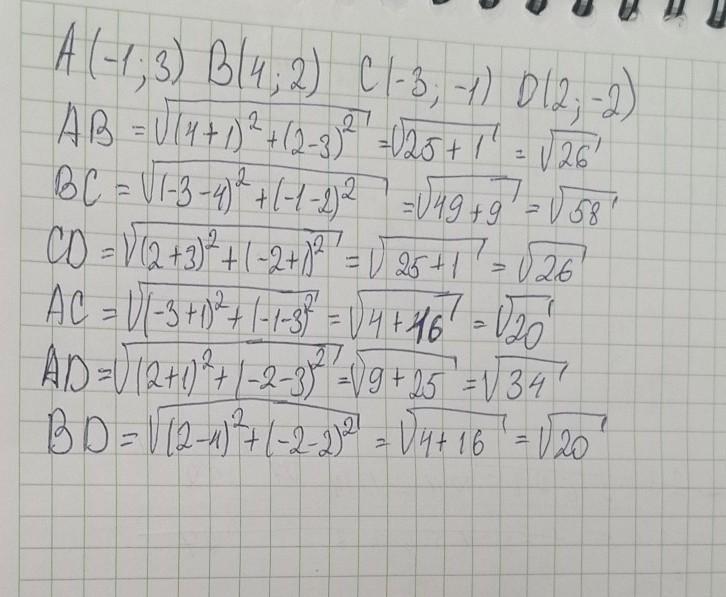 A(-1; 3) B(4; 2) C(-3; -1) D(2; -2)
AB = √(4+1)² + (2-3)² = √25 + 1 = √26
BC = √(-3-4)² + (-1-2)² = √49 + 9 = √58
CD = √(2+3)² + (-2+1)² = √25+1 = √26
AC = √(-3+1)² + (-1-3)² = √4 + 16 = √20
AD = √(2+1)² + (-2-3)² = √9 + 25 = √34
BD = √(2-4)² + (-2-2)² = √4 + 16 = √20